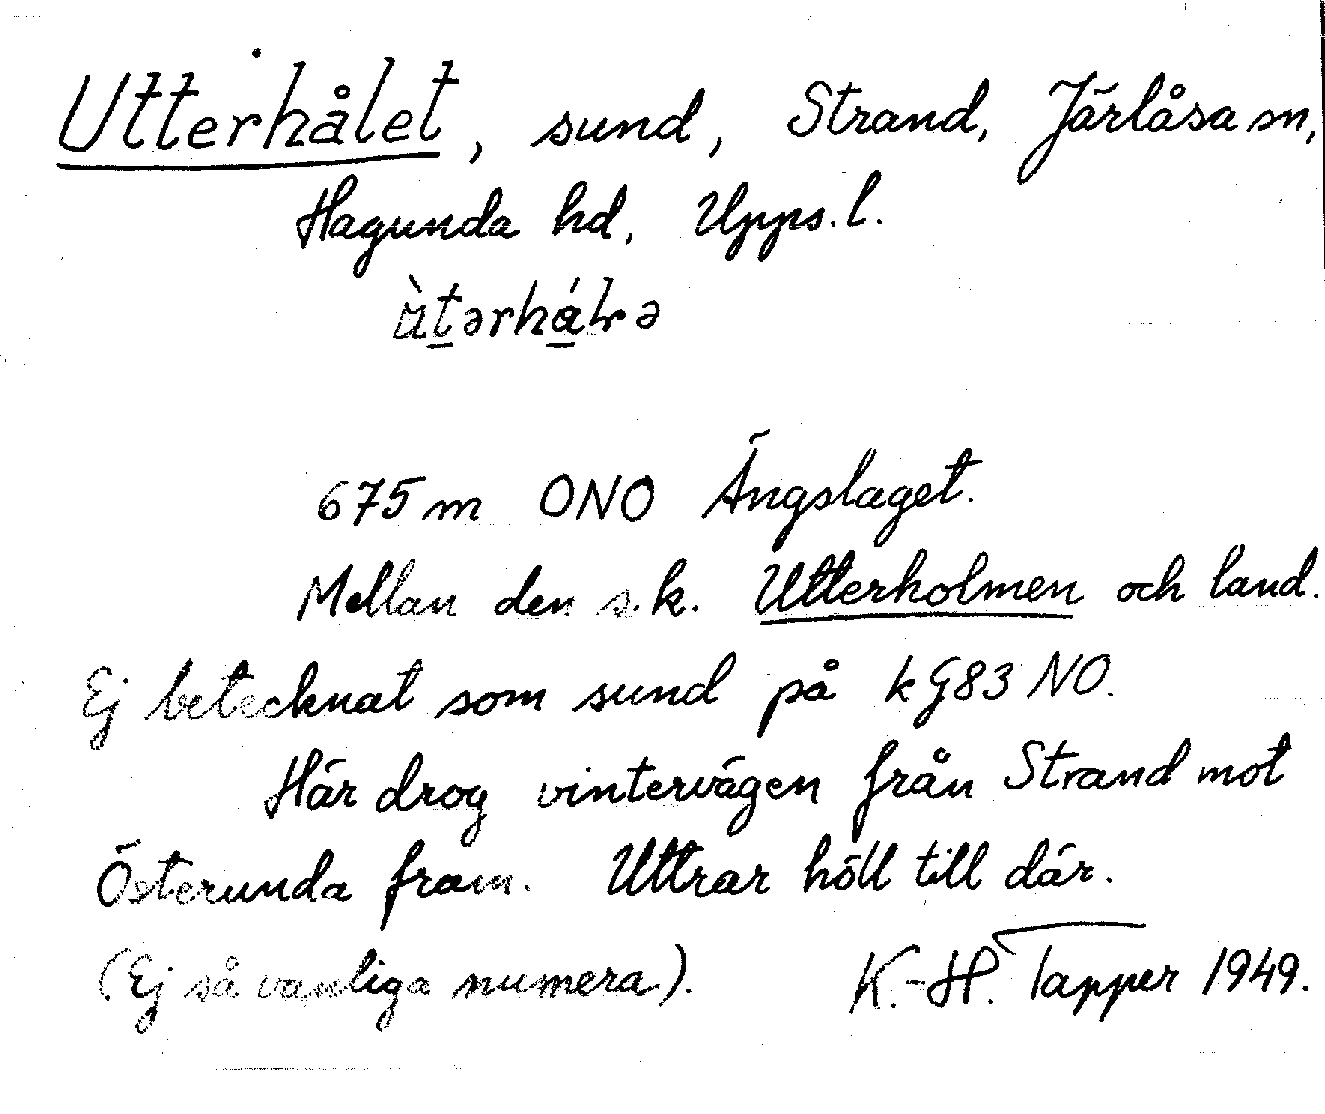 Utterhålet, sund, Strand, Järlåsa sn,
Hagunda hd, Upps. l.
675 m ONO Ängslaget.
Mellan den s.k. Utterholmen och land.
Ej betecknat som sund på k G83 NO.
Här drog vintervägen från Strand mot
Österunda fram. Uttrar höll till där.
(Ej så vanliga numera). K.-H. Tapper 1949.